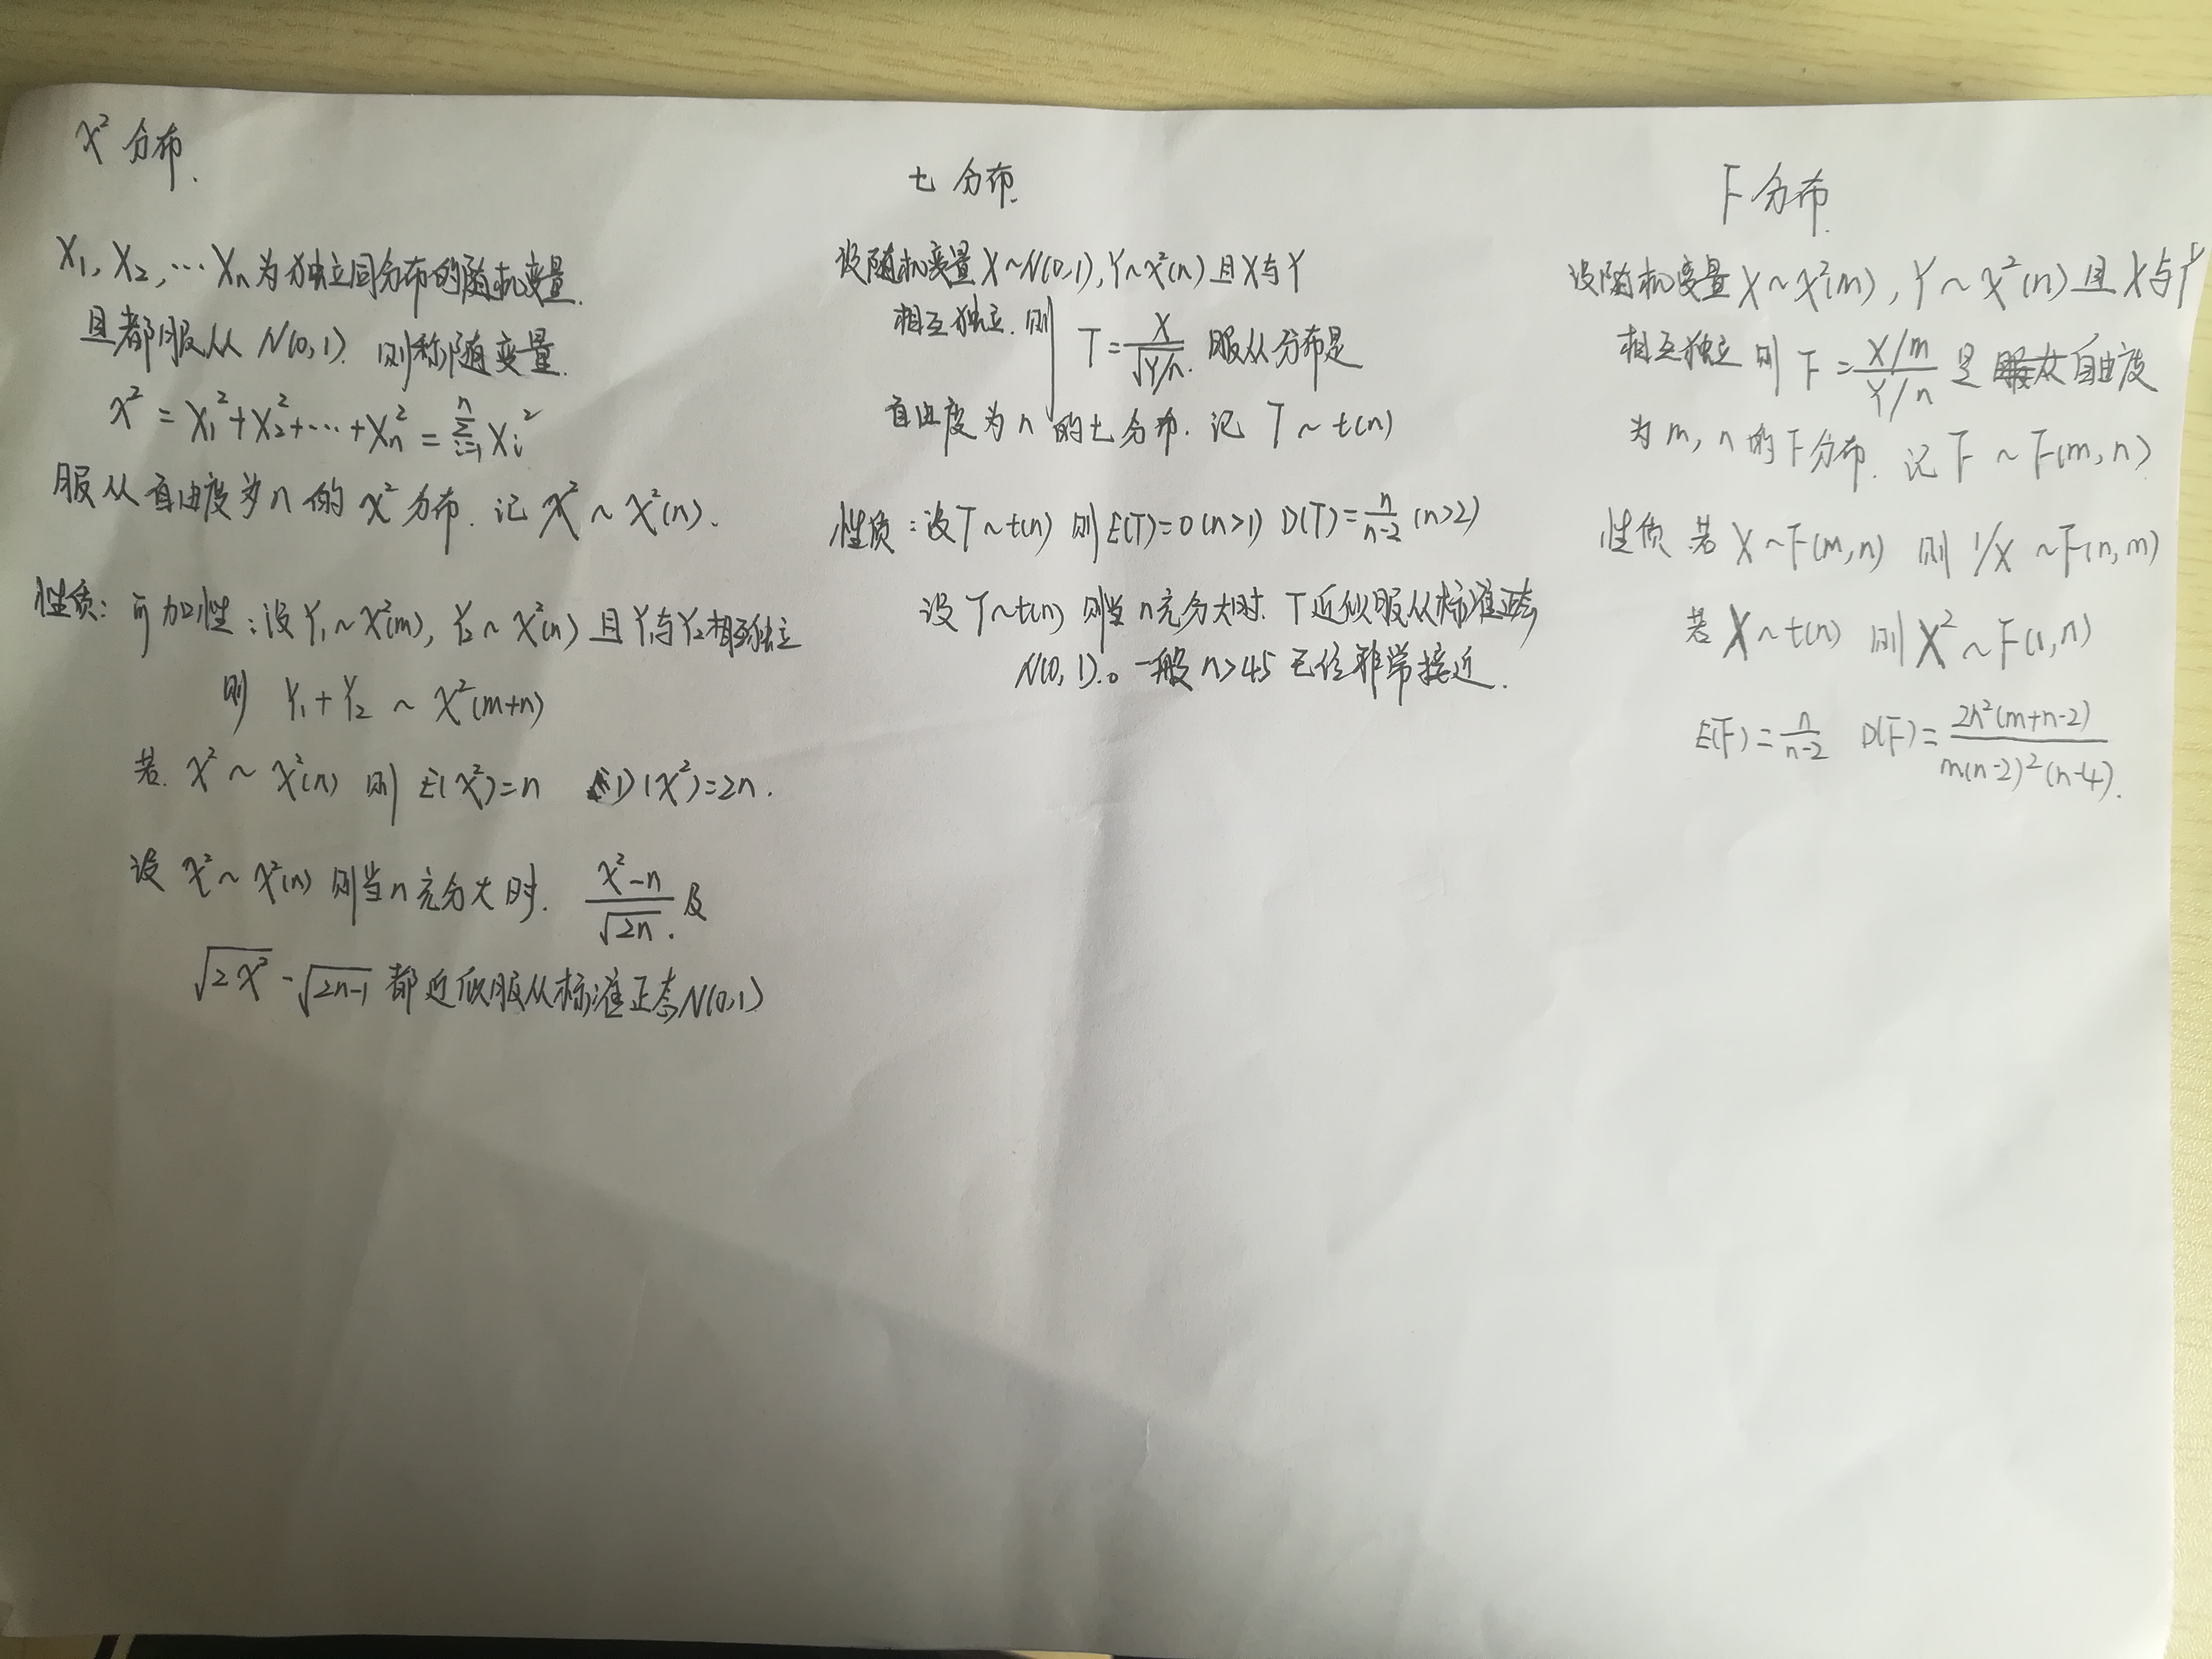 χ² 分布.
X₁, X₂, … Xₙ 为独立同分布的随机变量.
且都服从 N(0,1). 则称随变量.
χ² = X₁² + X₂² + … + Xₙ² = Σⁿᵢ₌₁ Xᵢ²
服从自由度为 n 的 χ² 分布. 记 χ² ~ χ²(n).
性质: 可加性: 设 Y₁ ~ χ²(m), Y₂ ~ χ²(n) 且 Y₁与Y₂相互独立
则 Y₁ + Y₂ ~ χ²(m+n)
若. χ² ~ χ²(n) 则 E(χ²)=n D(χ²)=2n.
设 χ² ~ χ²(n) 则当 n 充分大时. (χ²-n)/√2n. 及
√2χ² - √2n-1 都近似服从标准正态 N(0,1)
t 分布.
设随机变量 X~N(0,1), Y~χ²(n) 且 X与Y
相互独立. 则 T = X/√Y/n. 服从分布是
自由度为 n 的 t 分布. 记 T ~ t(n)
性质: 设 T~t(n) 则 E(T)=0 (n>1) D(T)=n/(n-2) (n>2)
设 T~t(n) 则当 n 充分大时. T 近似服从标准正态
N(0,1).。一般 n>45 已经非常接近.
F 分布.
设随机变量 X~χ²(m), Y~χ²(n) 且 X与Y
相互独立 则 F = (X/m)/(Y/n) 是 服从 自由度
为 m, n 的 F 分布. 记 F ~ F(m,n)
性质 若 X~F(m,n) 则 1/X ~ F(n,m)
若 X~t(n) 则 X² ~ F(1,n)
E(F) = n/(n-2) D(F) = 2n²(m+n-2)/(m(n-2)²(n-4)).